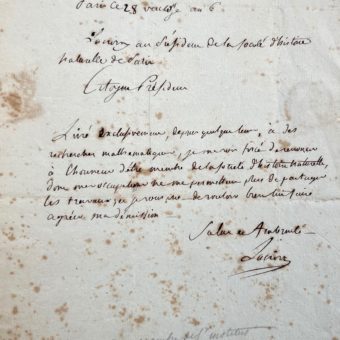 Paris ce 28 au 6
Lacroix au Président de la société d'histoire
naturelle de Paris
Citoyen Président
Livré exclusivement depuis quelque tems, à des
recherches mathématiques, je me vois forcé de renoncer
à l'honneur d'être membre de la société d'histoire naturelle,
dont mes occupations ne me permettent plus de partager
les travaux; je vous prie de vouloir bien lui faire
agréer ma démission
Salut et fraternité
Lacroix
institut